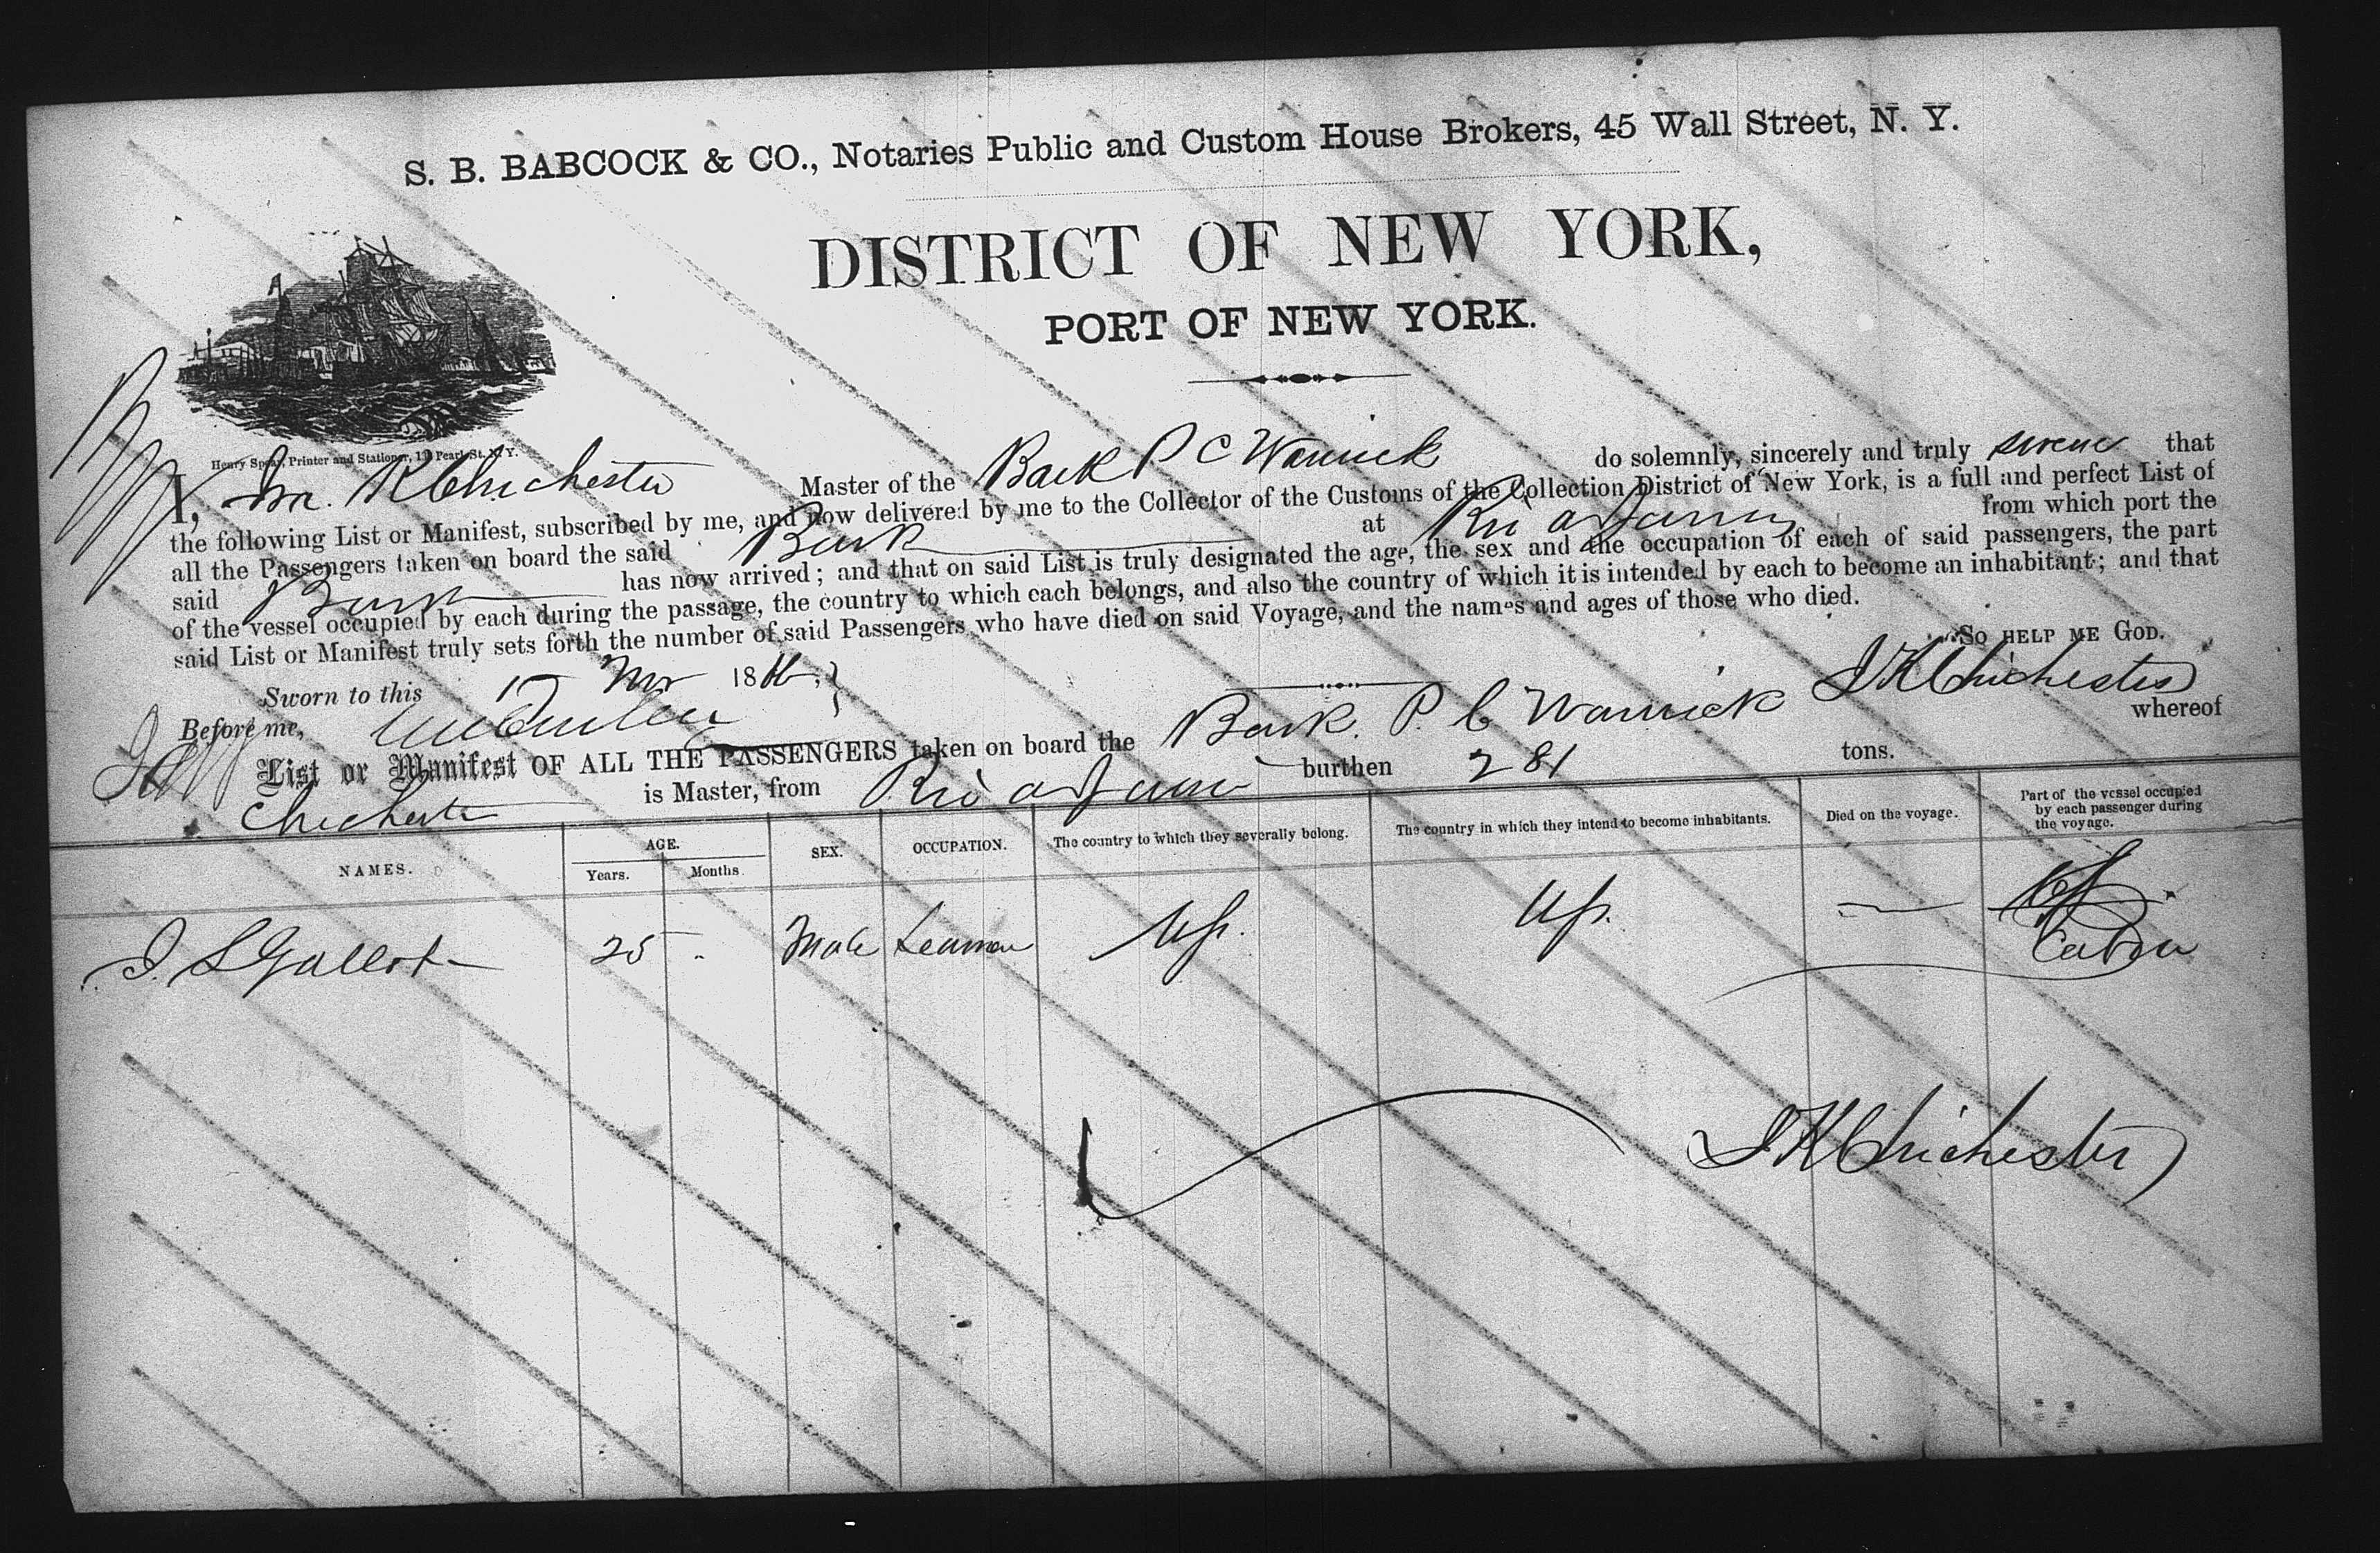 S. B. BABCOCK & CO., Notaries Public and Custom House Brokers, 45 Wall Street, N. Y.
DISTRICT OF NEW YORK,
PORT OF NEW YORK.
Henry Spear, Printer and Stationer, Pearl St. N. Y.
I, Chichester Master of the Bark P C Warwick do solemnly, sincerely and truly swear that
the following List or Manifest, subscribed by me, and now delivered by me to the Collector of the Customs of the Collection District of New York, is a full and perfect List of
all the Passengers taken on board the said Bark at Rio from which port the
said Bark has now arrived; and that on said List is truly designated the age, the sex and the occupation of each of said passengers, the part
of the vessel occupied by each during the passage, the country to which each belongs, and also the country of which it is intended by each to become an inhabitant; and that
said List or Manifest truly sets forth the number of said Passengers who have died on said Voyage, and the names and ages of those who died.
SO HELP ME GOD.
Sworn to this 18
J K Chichester
Before me,
List or Manifest OF ALL THE PASSENGERS taken on board the Bark. P. C Warwick whereof
Chichester is Master, from Rio burthen 281 tons.
NAMES. AGE. Years. Months. SEX. OCCUPATION. The country to which they severally belong. The country in which they intend to become inhabitants. Died on the voyage. Part of the vessel occupied by each passenger during the voyage.
25 Male Seaman US. US. — Cabin
J K Chichester